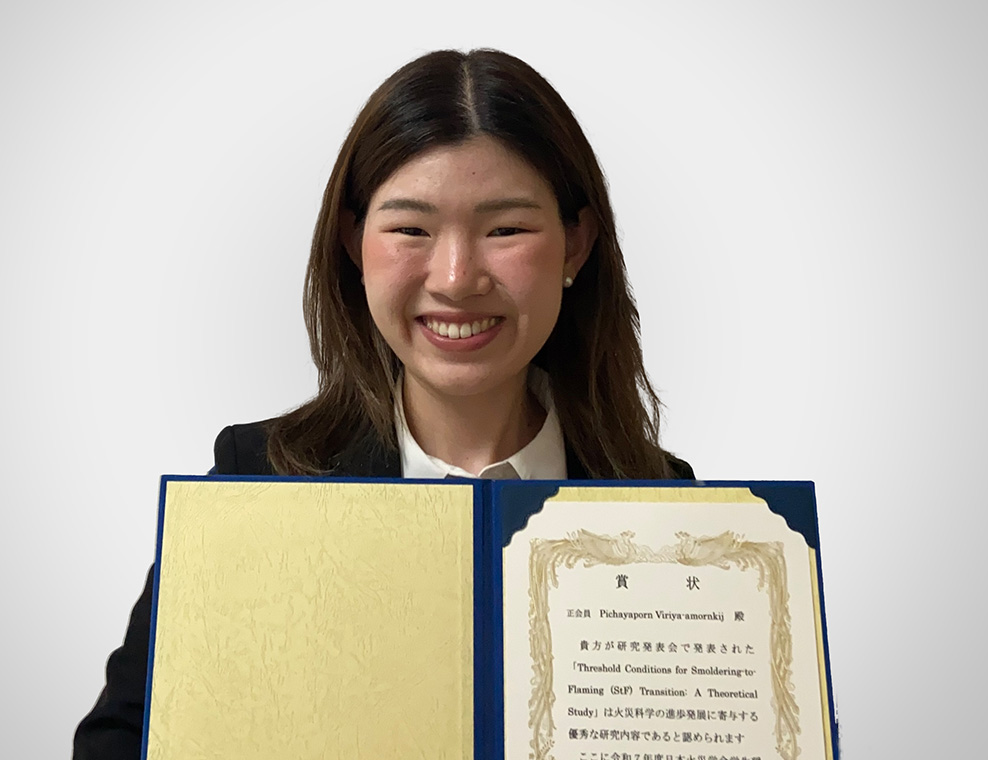 賞 状
正会員 Pichayaporn Viriya-amornkij 殿
貴方が研究発表会で発表された
「Threshold Conditions for Smoldering-to-
Flaming (StF) Transition: A Theoretical
Study」は火災科学の進歩発展に寄与する
優秀な研究内容であると認められます
ここに令和7年度日本火災学会学生奨